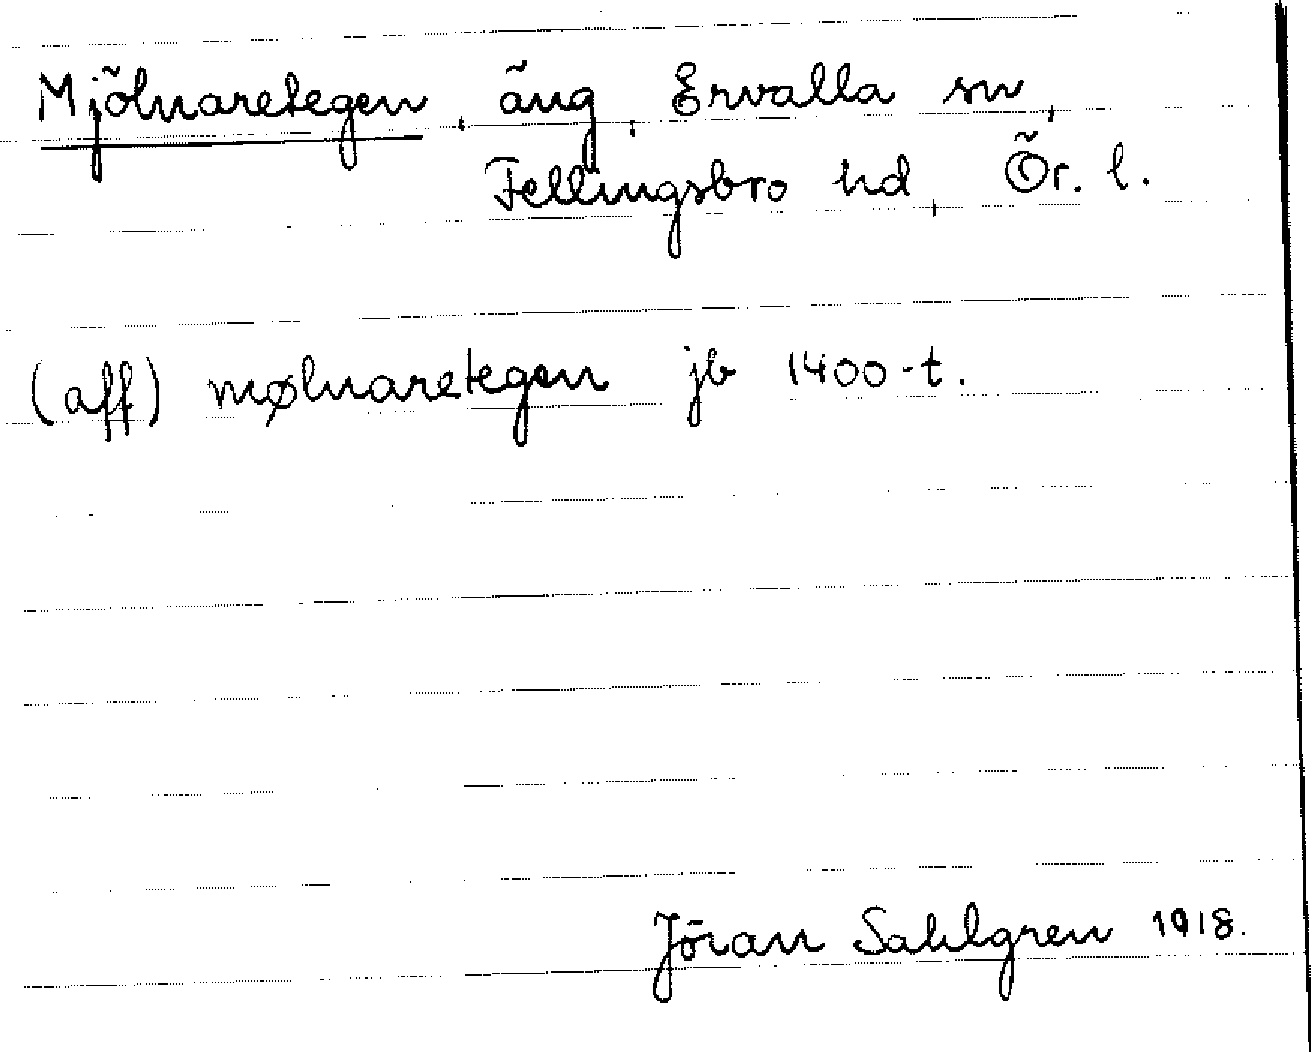 Mjölnaretegen, äng, Ervalla sn,
Fellingsbro hd, Ör. l.
(aff) mølnaretegen jb 1400-t.
Jöran Sahlgren 1918.